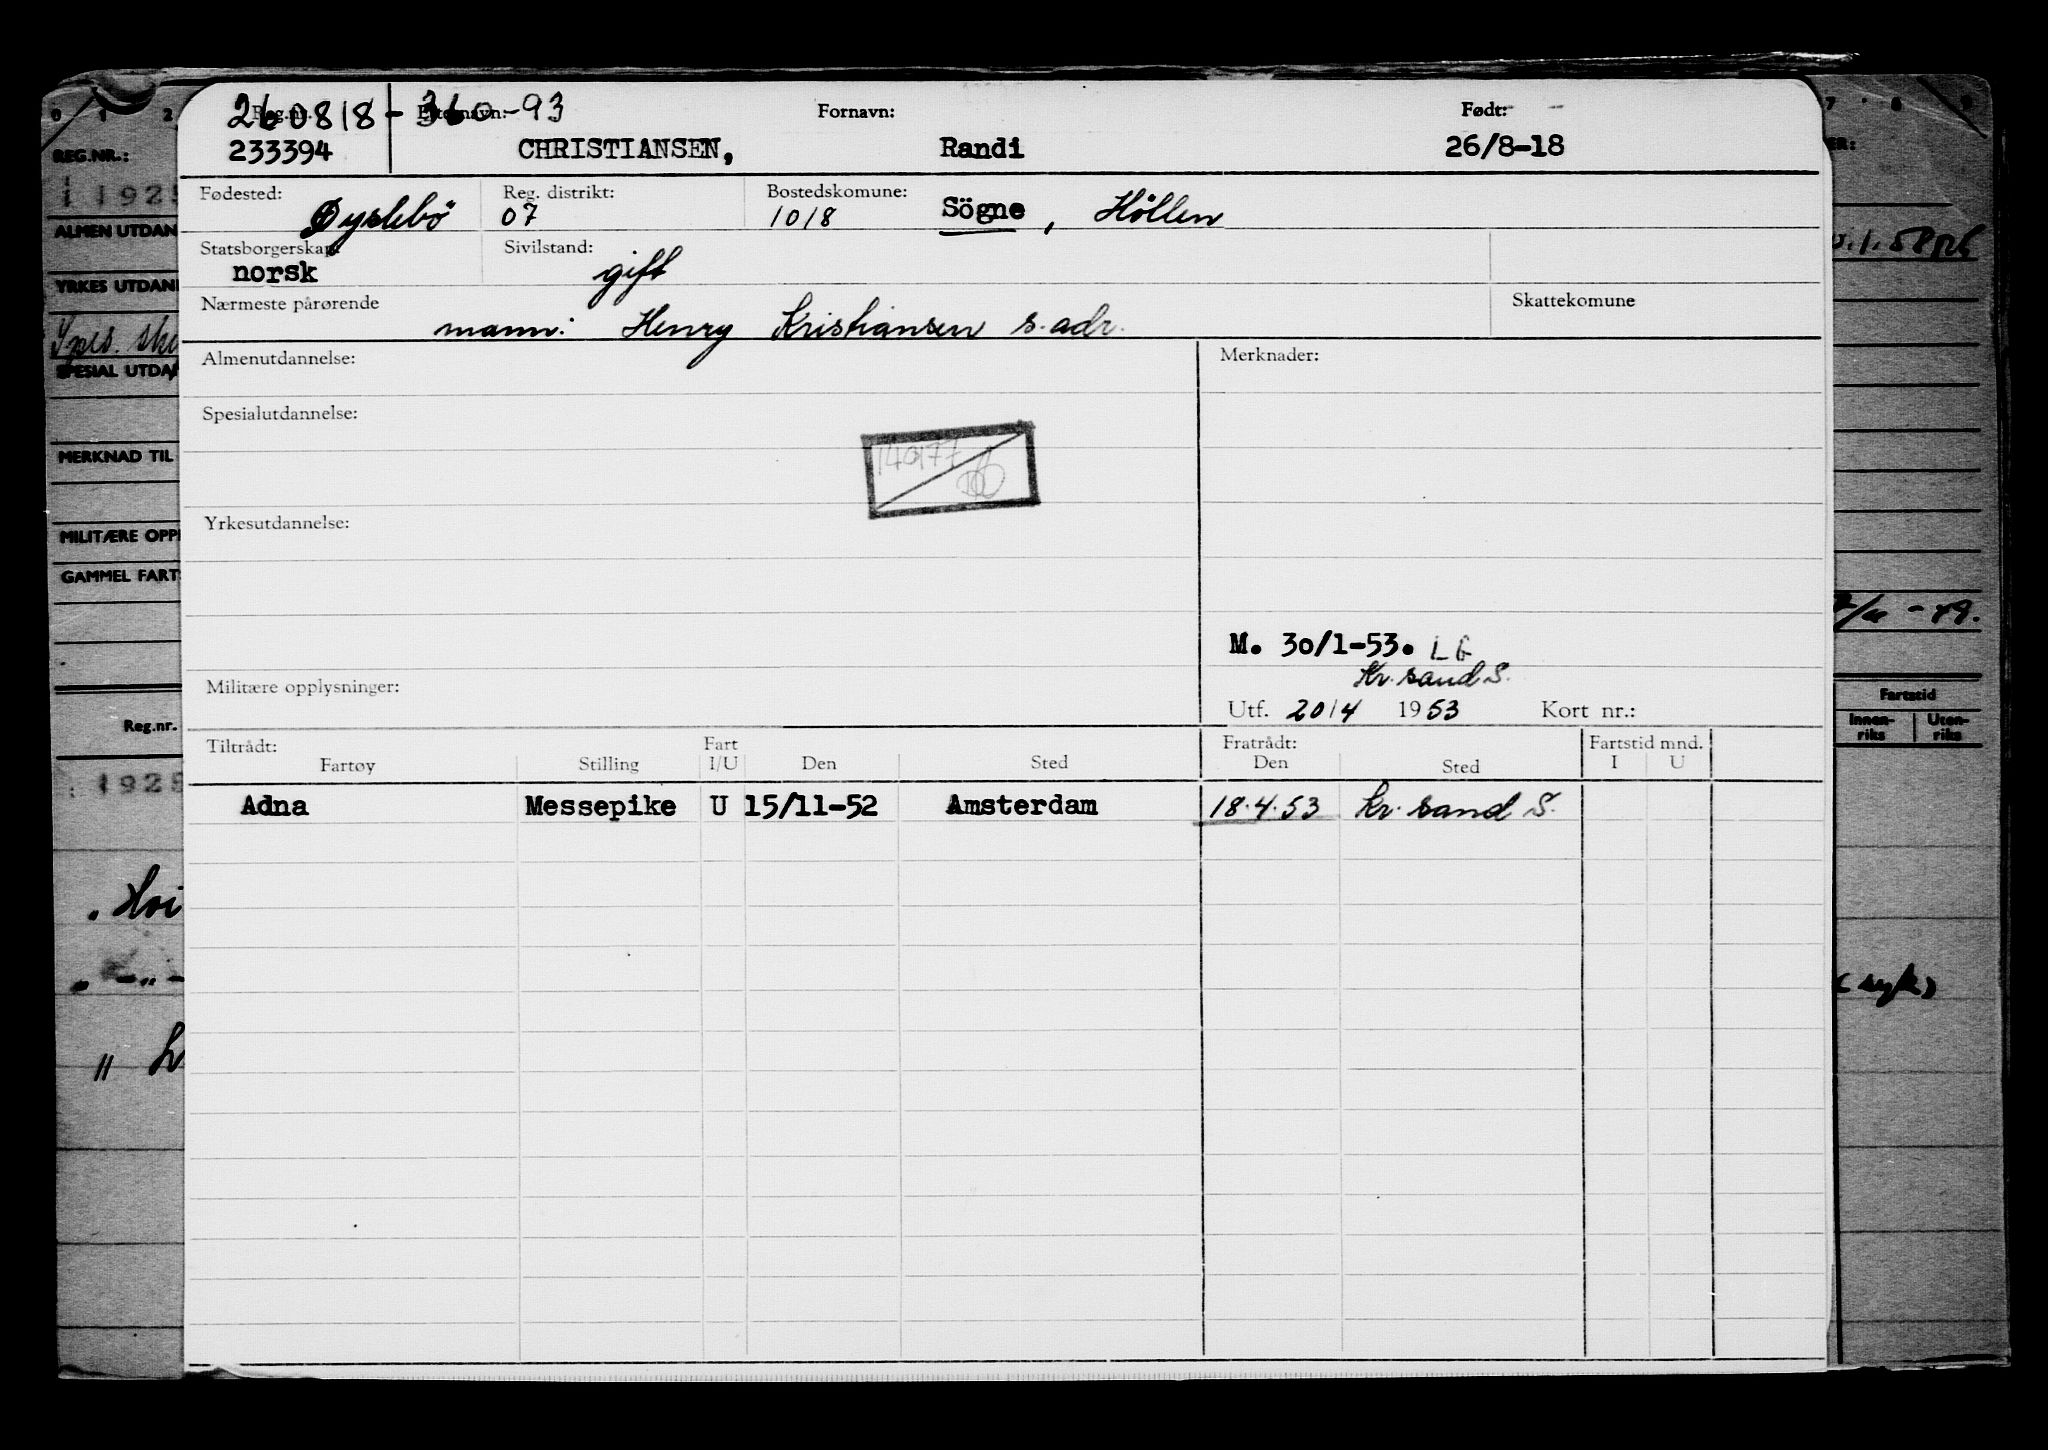 260818-360-93
Reg.nr. Etternavn: Fornavn: Født:
233394 CHRISTIANSEN, Randi 26/8-18
Fødested: Reg. distrikt: Bostedskomune:
Øyslebö 07 1018 Sögne, Höllen
Statsborgerskap: Sivilstand:
norsk gift
Nærmeste pårørende Skattekomune
mann: Henry Kristiansen s. adr.
Almenutdannelse: Merknader:
Spesialutdannelse:
140177
Yrkesutdannelse:
M. 30/1-53. LG
Kr. sand S.
Militære opplysninger:
Utf. 20/4 1953 Kort nr.:
Tiltrådt: Fart Fratrådt: Fartstid mnd.
Fartøy Stilling I/U Den Sted Den Sted I U
Adna Messepike U 15/11-52 Amsterdam 18.4.53 Kr. sand S.
0 1 2
REG.NR.:
1925
ALMEN UTDAN
YRKES UTDAN
Spes.
SPESIAL UTDA
MERKNAD TIL
MILITÆRE OPP
GAMMEL FART
Reg.nr.
1925
Hoi
7 8 9
ER:
Fartstid
Innen-riks Uten-riks
(syk)